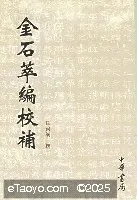 金石萃編校補
中華書局
eTaoyo.com ©2025